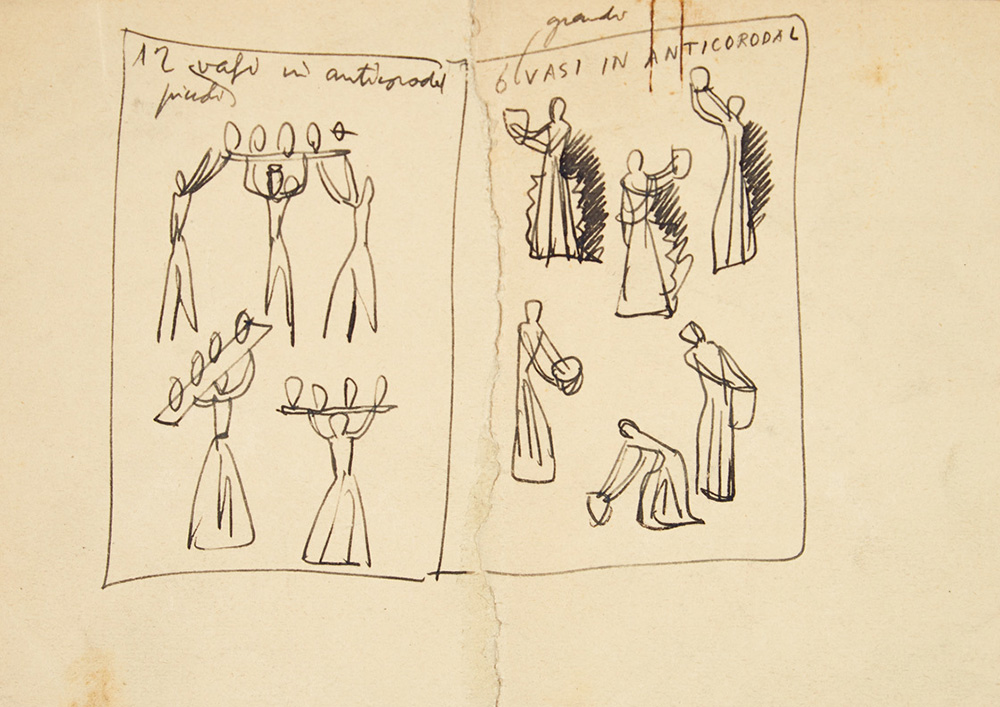 12 vasi in anticorodal
piccoli
grandi
6 VASI IN ANTICORODAL